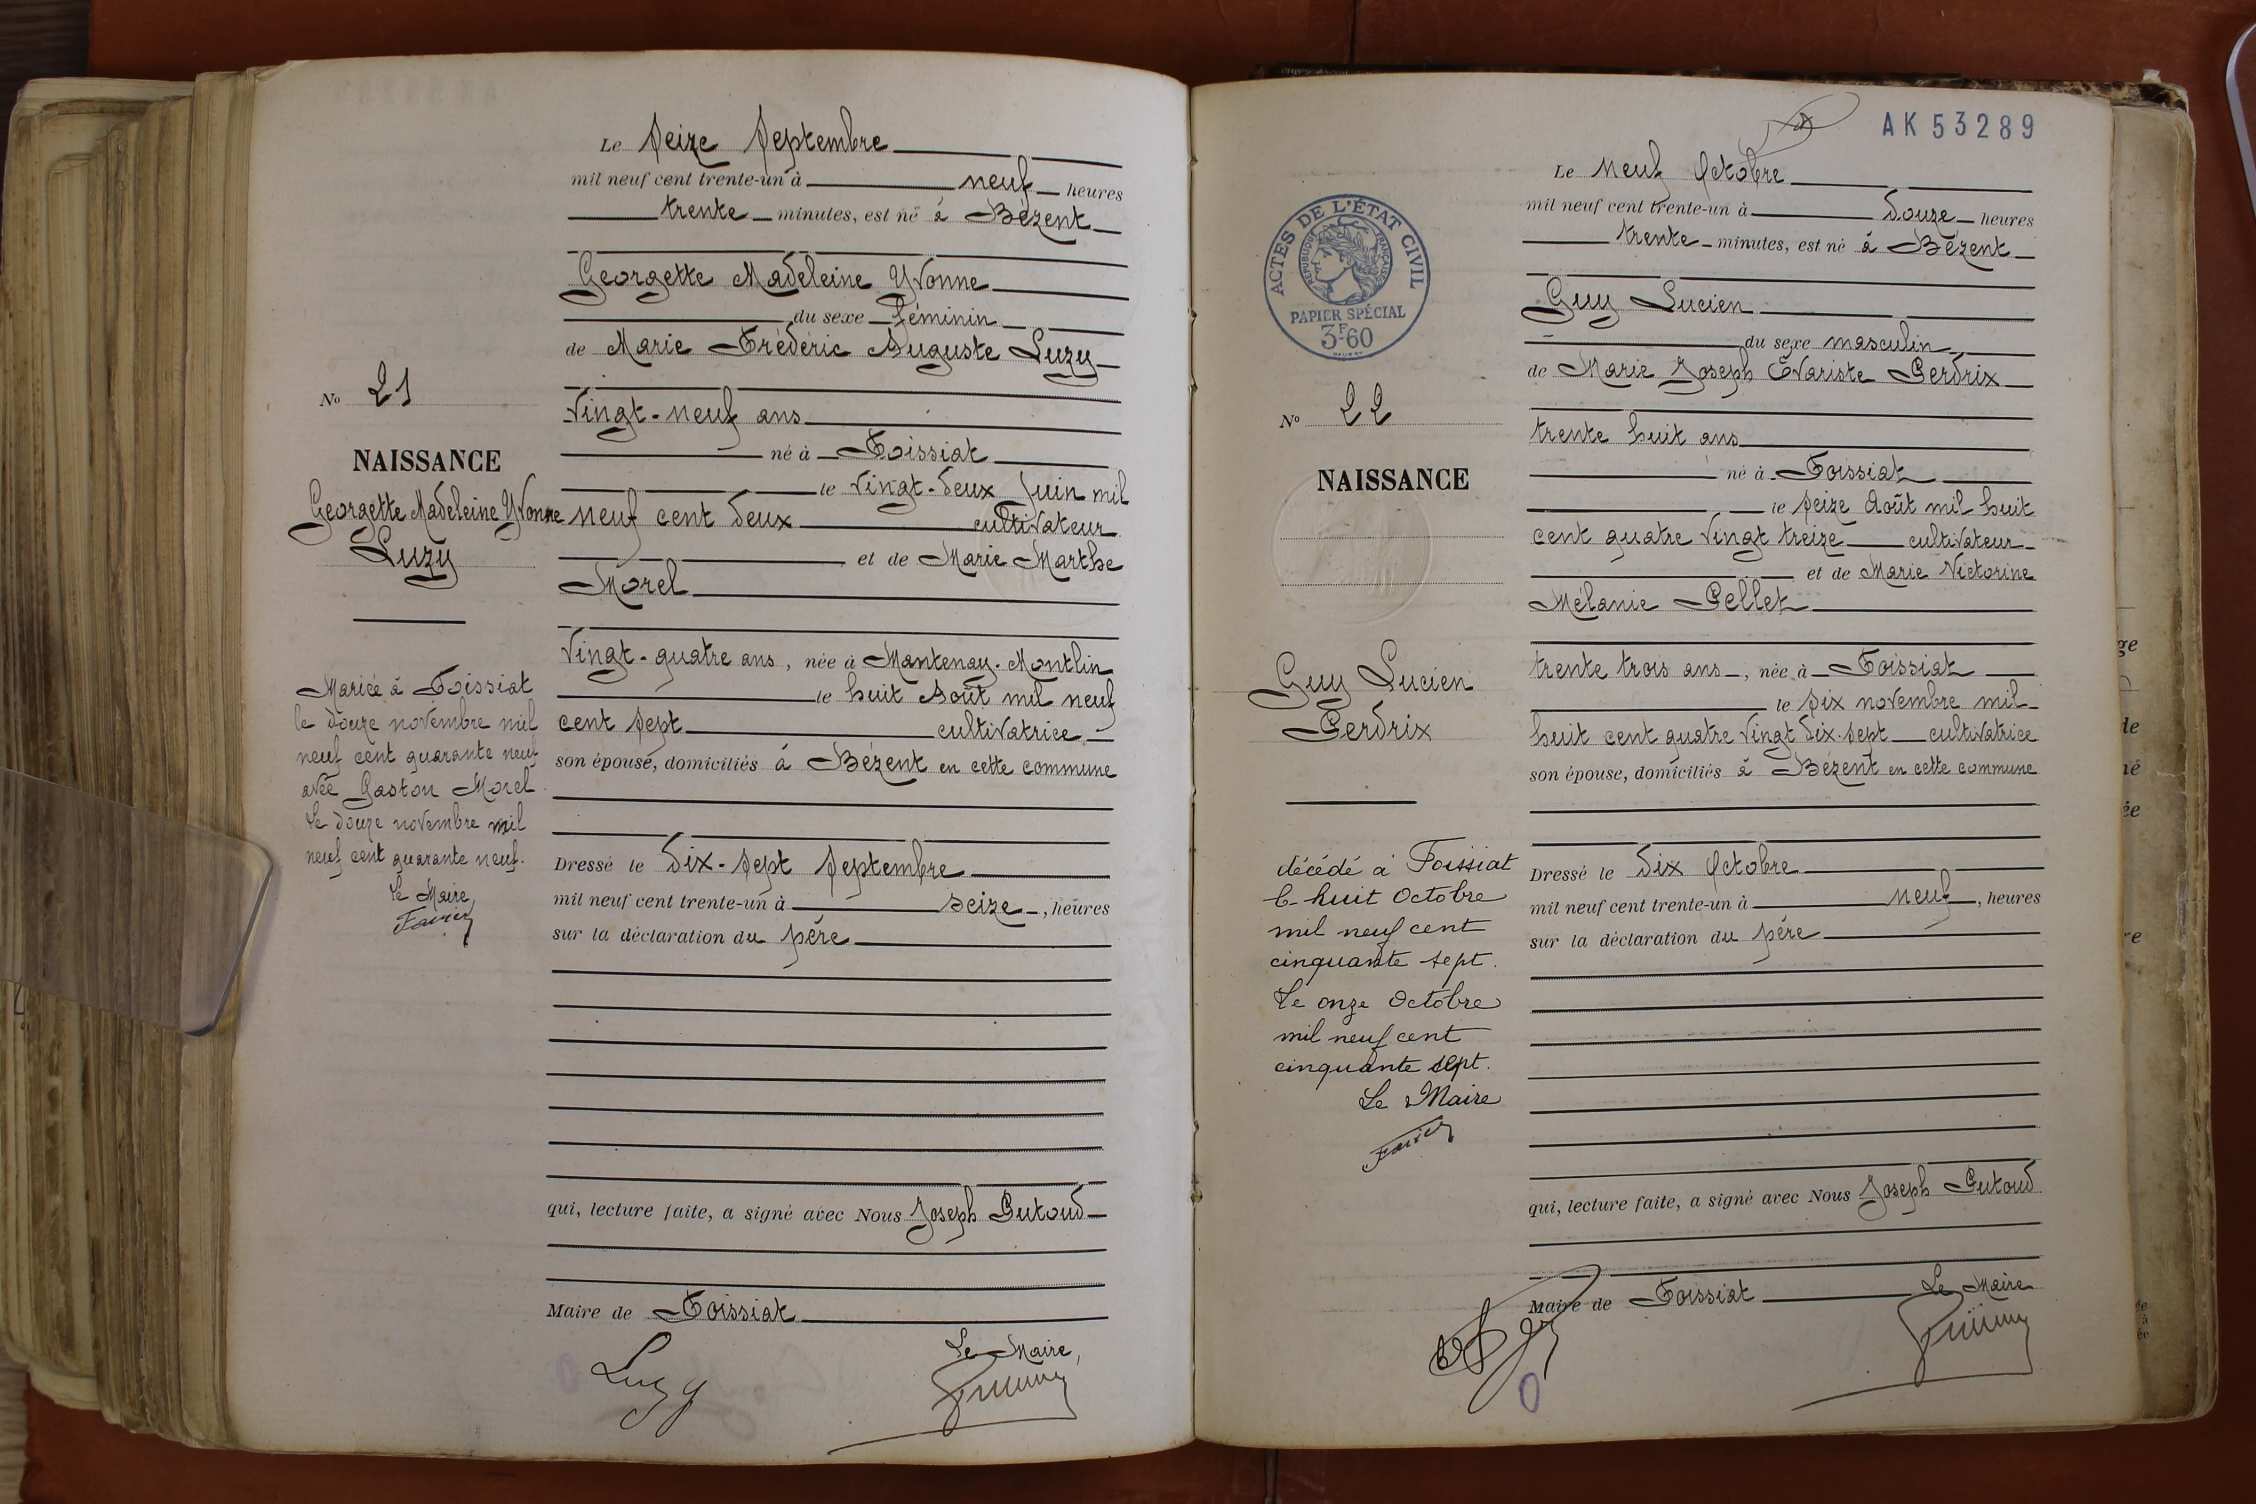 Le seize septembre
mil neuf cent trente-un à neuf heures
trente minutes, est né à Bézent
Georgette Madeleine Yvonne
du sexe féminin
de Marie Frédéric Auguste Luzy
No 21
vingt-neuf ans
NAISSANCE
né à Foissiat
le vingt-deux Juin mil
Georgette Madeleine Yvonne
neuf cent deux cultivateur
Luzy
et de Marie Marthe
Morel
vingt-quatre ans, née à Mantenay-Montlin
le huit Août mil neuf
cent sept cultivatrice
son épouse, domiciliés à Bézent en cette commune
Mariée à Foissiat
le douze novembre mil
neuf cent quarante neuf
avec Gaston Morel
Le douze novembre mil
neuf cent quarante neuf.
Le Maire
Dressé le dix-sept septembre
mil neuf cent trente-un à seize, heures
sur la déclaration du père
qui, lecture faite, a signé avec Nous Joseph Putoud
Maire de Foissiat
Le Maire,
Luzy
AK53289
Le neuf Octobre
mil neuf cent trente-un à douze heures
trente minutes, est né à Bézent
ACTES DE L'ÉTAT CIVIL
RÉPUBLIQUE FRANÇAISE
PAPIER SPÉCIAL
3F60
Guy Lucien
du sexe masculin
de Marie Joseph Évariste Perdrix
No 22
trente huit ans
NAISSANCE
né à Foissiat
le seize Août mil huit
cent quatre vingt treize cultivateur
et de Marie Victorine
Mélanie Pellet
Guy Lucien
Perdrix
trente trois ans, née à Foissiat
le six novembre mil
huit cent quatre vingt dix-sept cultivatrice
son épouse, domiciliés à Bézent en cette commune
décédé à Foissiat
le huit Octobre
mil neuf cent
cinquante sept.
Le onze Octobre
mil neuf cent
cinquante sept.
Le Maire
Dressé le dix Octobre
mil neuf cent trente-un à neuf, heures
sur la déclaration du père
qui, lecture faite, a signé avec Nous Joseph Putoud
Maire de Foissiat Le Maire